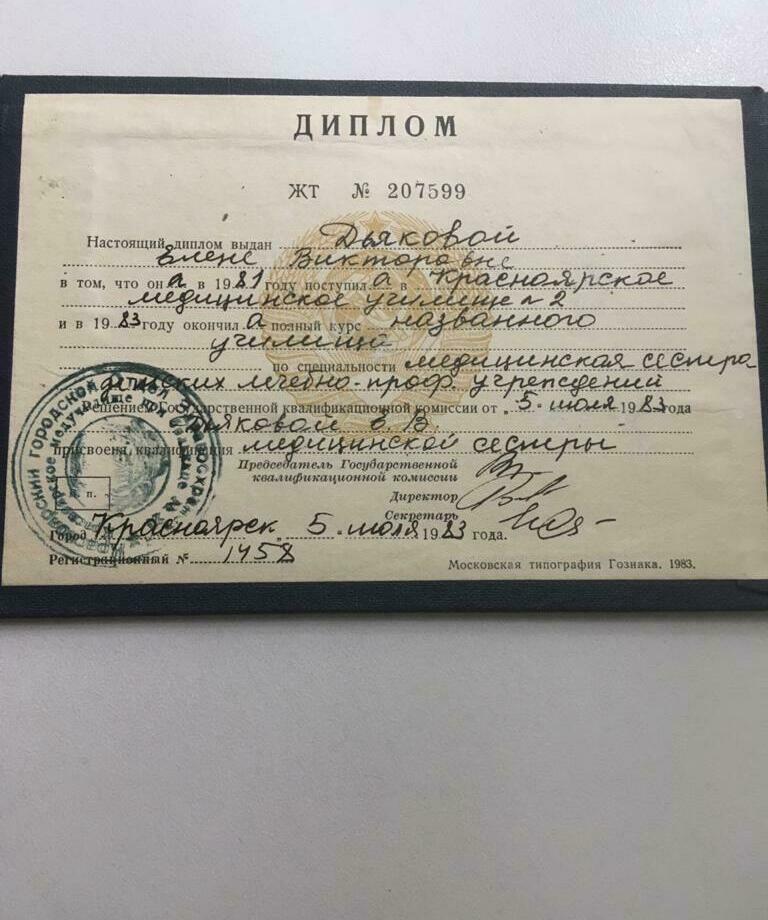 ДИПЛОМ
ЖТ № 207599
Настоящий диплом выдан Дьяковой
Елене Викторовне
в том, что она в 1981 году поступила в Красноярское
медицинское училище № 2
и в 1983 году окончила полный курс названного
училища
по специальности медицинская сестра
детских лечебно-проф. учреждений
Решением Государственной квалификационной комиссии от „5" июля 1983 года
Дьяковой Е. В
присвоена квалификация медицинской сестры
Председатель Государственной
квалификационной комиссии
Директор
Секретарь
М. п.
Город Красноярск 5 июля 1983 года.
Регистрационный № 1458
Московская типография Гознака. 1983.